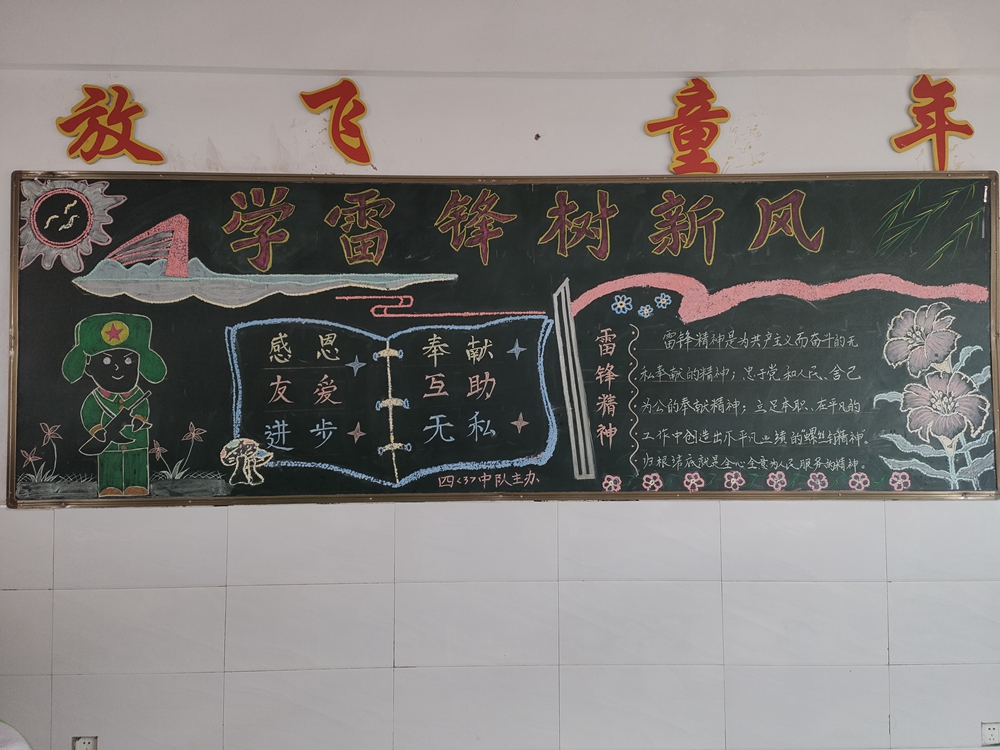 放飞童年
学雷锋树新风
感恩
友爱
进步
奉献
互助
无私
四〈3〉中队主办
雷锋精神
雷锋精神是为共产主义而奋斗的无
私奉献的精神；忠于党和人民、舍己
为公的奉献精神；立足本职、在平凡的
工作中创造出不平凡业绩的“螺丝钉精神”。
归根结底就是全心全意为人民服务的精神。